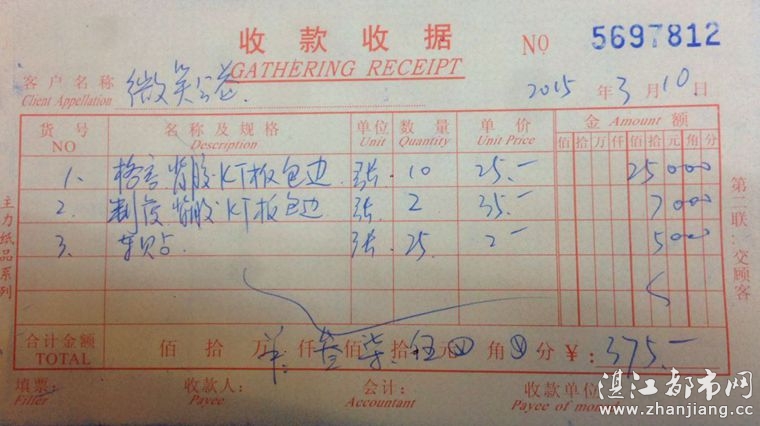 收款收据
GATHERING RECEIPT
NO 5697812
客户名称
Client Appellation
2015 年 3 月 10 日
货号 名称及规格 单位 数量 单价 金 Amount 额
NO Description Unit Quantity Unit Price 佰 拾 万 仟 佰 拾 元 角 分
1. 格言.背胶.KT板包边 张. 10 25.- 25000
2. 制度.背胶.KT板包边 张. 2 35.- 7000
3. 车贴. 张. 25 2- 5000
合计金额 佰 拾 万 仟 叁 佰 柒 拾 伍 元 角 分 ¥: 375.-
TOTAL
填票: 收款人: 会计: 收款单位
Filler Payee Accountant Payee of mon
主力纸品系列
第二联:交顾客
湛江都市网
www.zhanjiang.cc